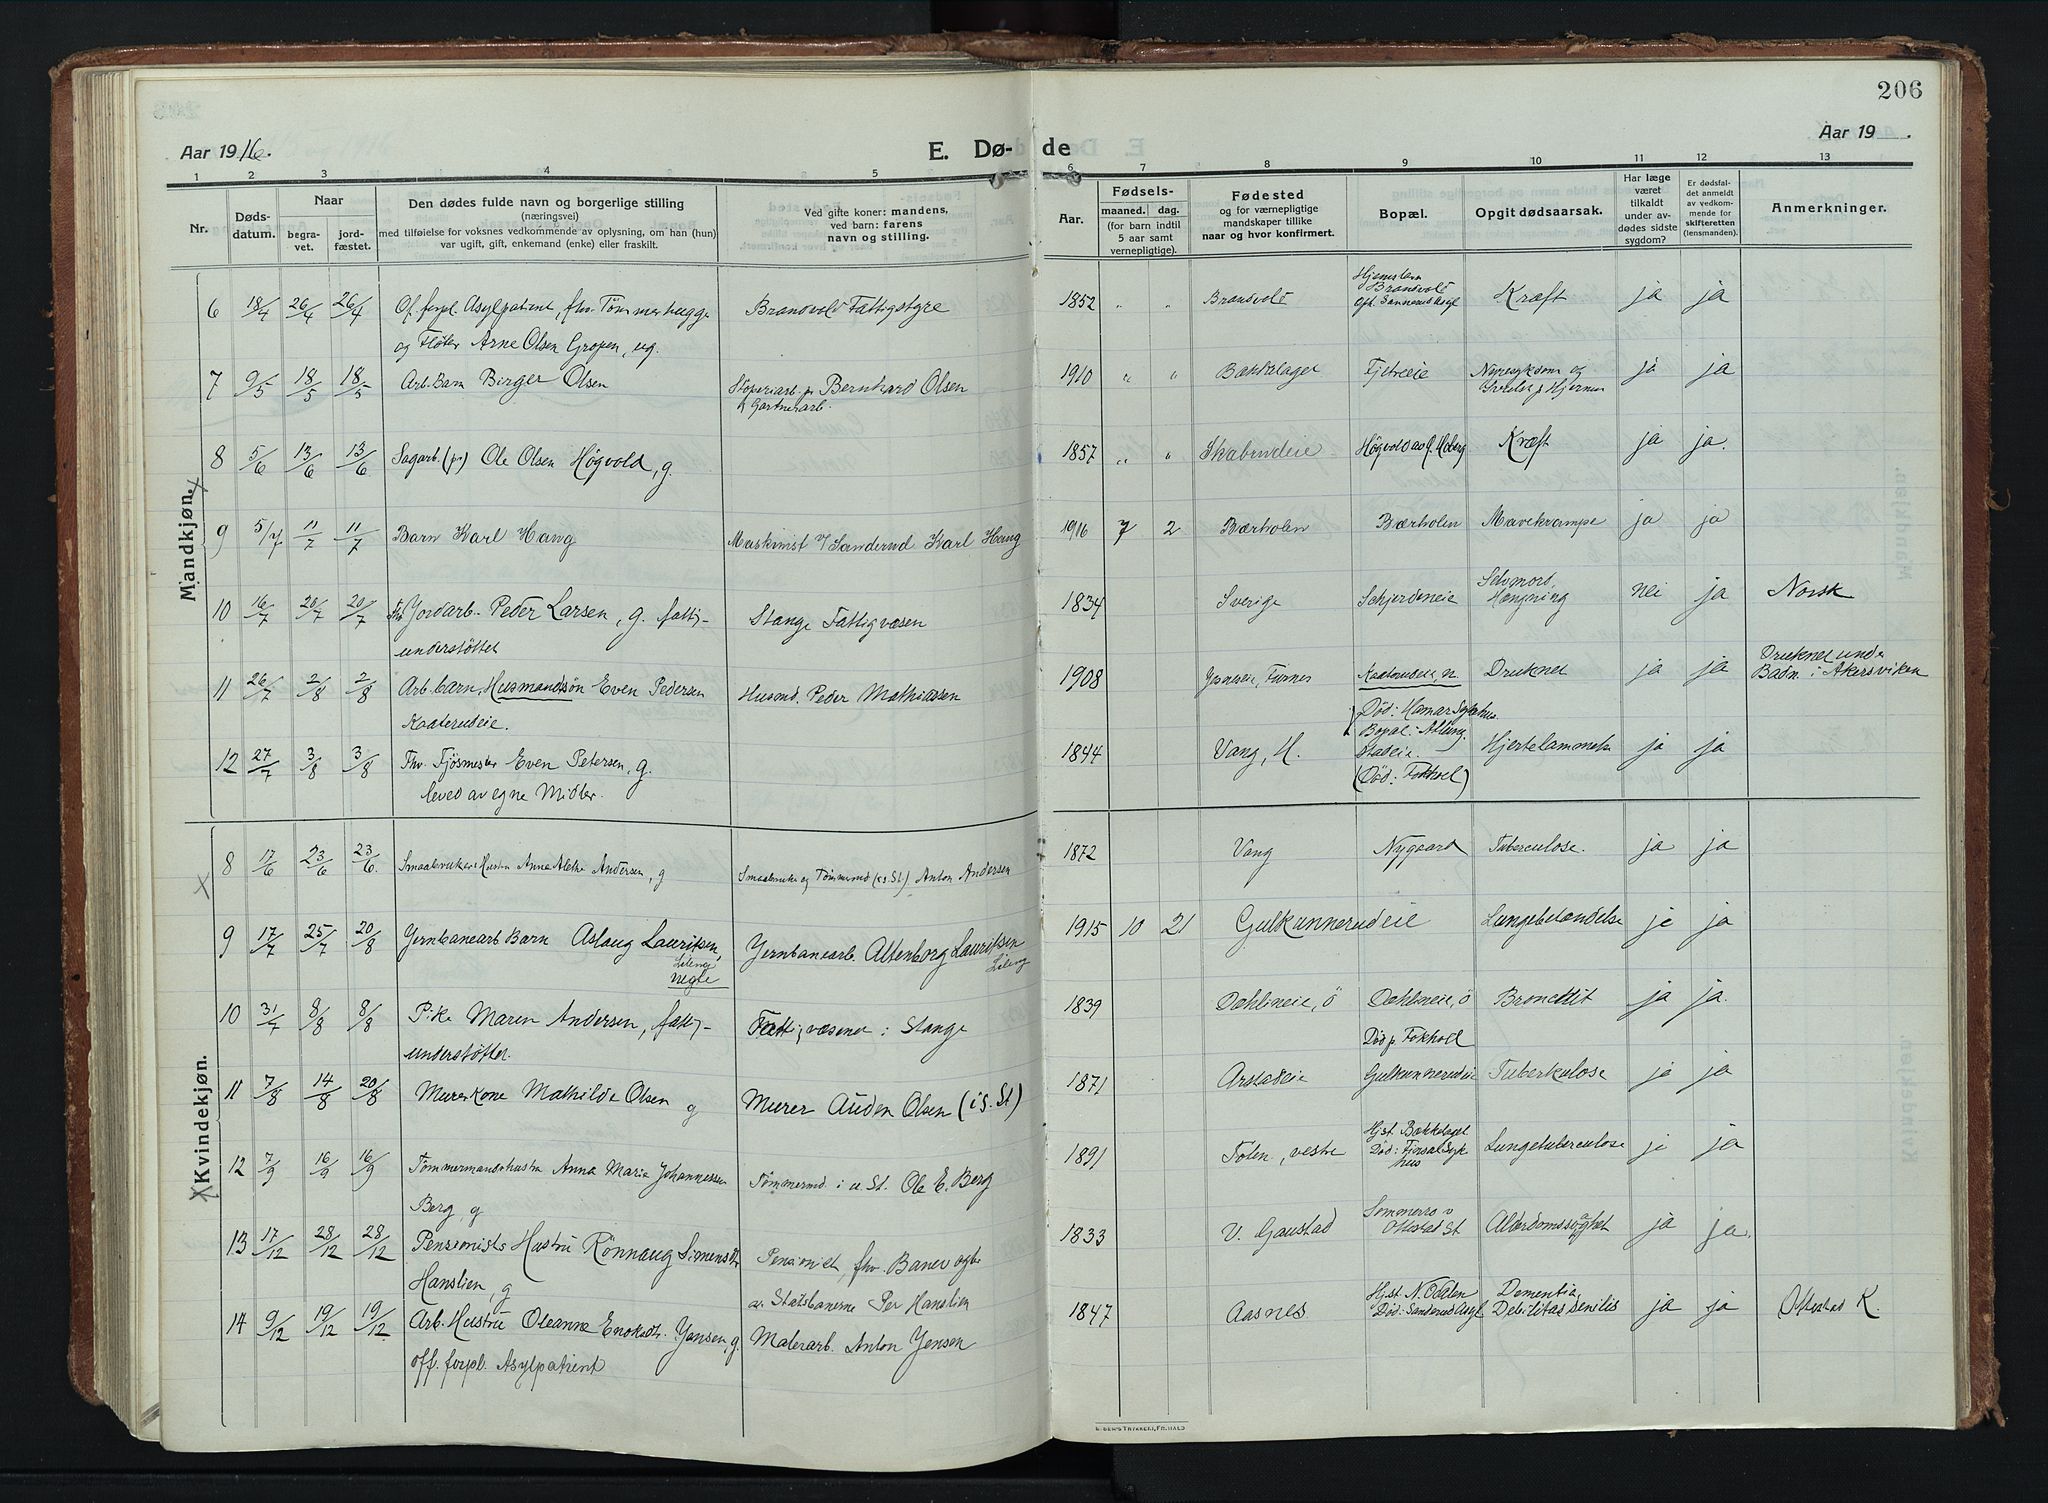 206
Aar 1916.
E. Dø-
de
Aar 19 .
1 2 3 4 5 6 7 8 9 10 11 12 13
Nr.
Døds-
datum.
Naar
begra-
vet.
jord-
fæstet.
Den dødes fulde navn og borgerlige stilling
(næringsvei)
med tilføielse for voksnes vedkommende av oplysning, om han (hun)
var ugift, gift, enkemand (enke) eller fraskilt.
Ved gifte koner: mandens,
ved barn: farens
navn og stilling.
Aar.
Fødsels-
maaned. dag.
(for barn indtil
5 aar samt
vernepligtige).
Fødested
og for værnepligtige
mandskaper tillike
naar og hvor konfirmert.
Bopæl.
Opgit dødsaarsak.
Har læge
været
tilkaldt
under av-
dødes sidste
sygdom?
Er dødsfal-
det anmeldt
av vedkom-
mende for
skifteretten
(lensmanden).
Anmerkninger.
Mandkjøn.
6 18/4 26/4 26/4 Of. forpl. Asylpatient, fhv. Tømmerhugge
og Fløter Arne Olsen Gropen, ug.
Brandvold Fattigstyre
1852 " " Brandvold
Brandvold
Kræft ja ja
7 9/5 18/5 18/5 Arb. Barn Birger Olsen
Bernhard Olsen
Gartnerarb.
1910 " " Bækkelaget
Nyresykdom og
Hjernen
ja ja
8 5/6 13/6 13/6 Sagarb. (pr) Ole Olsen Høgvold, g.
1857 " " Skabrudeie
Høgvold av
Kræft ja ja.
9 5/7 11/7 11/7 Barn Karl Haug
Maskinist v/ Sanderud Karl Haug
1916 7 2 Bærholen Bærholen Mavekrampe ja ja
10 16/7 20/7 20/7 Jordarb. Peder Larsen, g. fattig-
understøttet
Stange Fattigvæsen
1834 Sverige Schjerdeneie Selvmord,
Hængning nei ja Norsk
11 26/7 2/8 2/8 Arb. barn, Husmandssøn Even Pedersen
Kaaterudeie.
Husmd. Peder Mathiassen
1908 Furnes Kaaterudeie, n. Druknet ja ja
Druknet under
Badn. i Akersviken
Død: Hamar Sykehus.
12 27/7 3/8 3/8 Fhv. Fjøsmester Even Petersen, g.
leved av egne Midler.
1844 Vang, H.
Bopæl:
(Død: Fokhol)
Hjertelammelse ja ja
Kvindekjøn.
8 17/6 23/6 23/6. Smaabrukers Hustru Anne Andersen, g
Smaabruker og Tømmermd (i s. St). Anton Andersen
1872 Vang Nygaard Tuberculose. ja ja
9 17/7 25/7 20/8 Jernbanearb Barn Aslaug Lauritsen,
uegte
Jernbanearb. Altenborg Lauritsen
1915 10 21 Gulkunnerudeie Lungebetændelse ja ja
10 31/7 8/8 8/8 Pike Maren Andersen, fattig-
understøttet.
Fattigvæsenet i Stange
1839 Dehlineie, Ö Dehlineie, ö Bronchit ja ja.
Død p. Fokhol
11 7/8 14/8 20/8 Murerkone Mathilde Olsen g
Murer Auden Olsen (i s. St)
1871 Arstadeie Gulkunnerudeie Tuberkulose ja ja
12 7/9 16/9 16/9 Tømmermandshustru Anna Maria Johannessen
Berg, g
Tømmermd. i u. St. Ole E. Berg
1891 Toten, vestre
Hjst. Bækkelaget
Død: Sykehus
Lungetuberculose ja ja
13 17/12 28/12 28/12 Pensionists Hustru Rønnaug Simensdtr
Hanslien, g
Pensionist, fhv. Banevogter
av Statsbanerne Per Hanslien
1833 V. Gaustad
Sommerro v
Ottestad St
Alderdomssvaghet ja ja.
14 9/12 19/12 19/12 Arb. Hustru Oleanna Enoksdtr. Jensen, g.
off. forpl. Asylpatient
Malerarb. Anton Jensen
1847 Aasnes
Hjst. N. Odalen
Død: Sanderud Asyl
Dementia,
Debilitas senilis ja ja Ottestad K.